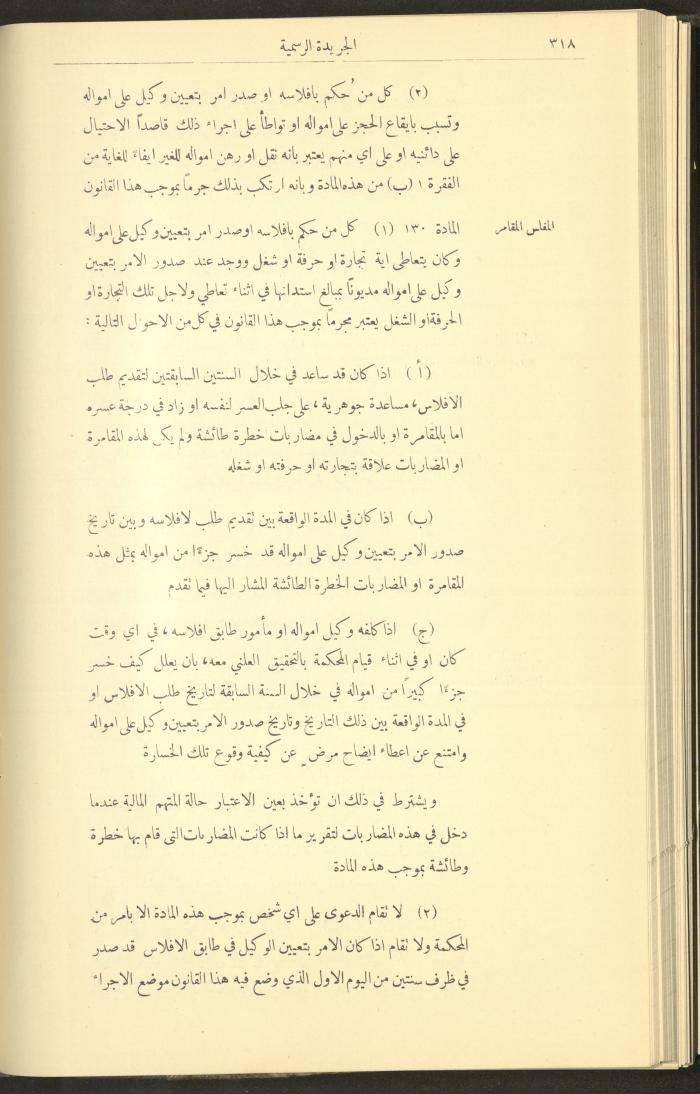 ٣١٨
الجريدة الرسمية
(٢) كل من حُكم بافلاسه او صدر امر بتعيين وكيل على امواله
وتسبب بايقاع الحجز على امواله او تواطأ على اجراء ذلك قاصداً الاحتيال
على دائنيه او على اي منهم يعتبر بانه نقل او رهن امواله للغير ايفاءً للغاية من
الفقرة ١ (ب) من هذه المادة وبانه ارتكب بذلك جرماً بموجب هذا القانون
المفلس المقامر
المادة ١٣٠ (١) كل من حكم بافلاسه او صدر امر بتعيين وكيل على امواله
وكان يتعاطى اية تجارة او حرفة او شغل ووجد عند صدور الامر بتعيين
وكيل على امواله مديوناً بمبالغ استدانها في اثناء تعاطي ولاجل تلك التجارة او
الحرفة او الشغل يعتبر مجرماً بموجب هذا القانون في كل من الاحوال التالية :
(أ) اذا كان قد ساعد في خلال السنتين السابقتين لتقديم طلب
الافلاس، مساعدة جوهرية، على جلب العسر لنفسه او زاد في درجة عسره
اما بالمقامرة او بالدخول في مضاربات خطرة طائشة ولم يكن لهذه المقامرة
او المضاربات علاقة بتجارته او حرفته او شغله
(ب) اذا كان في المدة الواقعة بين تقديم طلب لافلاسه وبين تاريخ
صدور الامر بتعيين وكيل على امواله قد خسر جزءًا من امواله بمثل هذه
المقامرة او المضاربات الخطرة الطائشة المشار اليها فيما تقدم
(ج) اذا كلفه وكيل امواله او مأمور طابق افلاسه، في اي وقت
كان او في اثناء قيام المحكمة بالتحقيق العلني معه، بان يعلل كيف خسر
جزءًا كبيراً من امواله في خلال السنة السابقة لتاريخ طلب الافلاس او
في المدة الواقعة بين ذلك التاريخ وتاريخ صدور الامر بتعيين وكيل على امواله
وامتنع عن اعطاء ايضاح مرضٍ عن كيفية وقوع تلك الخسارة
ويشترط في ذلك ان تؤخذ بعين الاعتبار حالة المتهم المالية عندما
دخل في هذه المضاربات لتقرير ما اذا كانت المضاربات التي قام بها خطرة
وطائشة بموجب هذه المادة
(٢) لا تقام الدعوى على اي شخص بموجب هذه المادة الا بامر من
المحكمة ولا تقام اذا كان الامر بتعيين الوكيل في طابق الافلاس قد صدر
في ظرف سنتين من اليوم الاول الذي وضع فيه هذا القانون موضع الاجراء